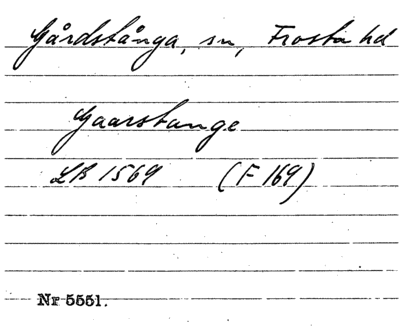 Gårdstånga, sn, Frosta hd
Gaarstange
LB 1569 (F 169)
Nr 5551.